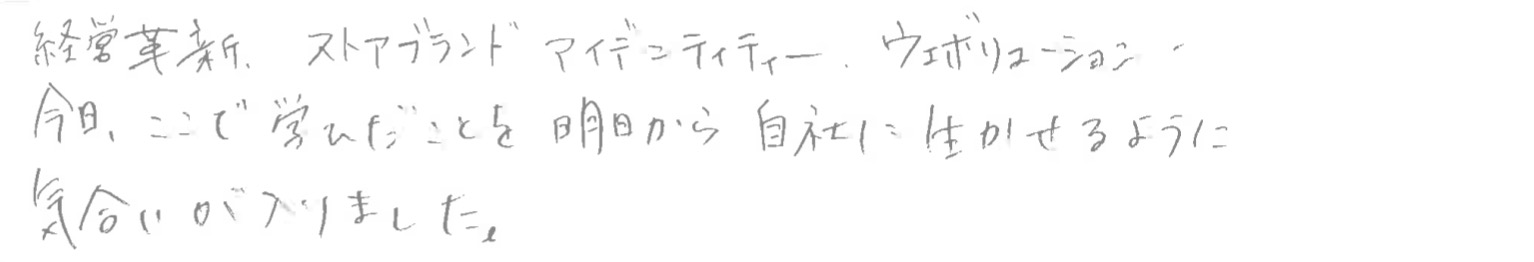 経営革新、ストアブランドアイデンティティー、ウェボリューション・
今日、ここで学んだことを明日から自社に生かせるように
気合いが入りました。